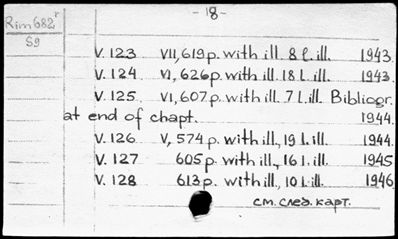 - 18 -
Rim 682r
S9
V. 123 VII, 619 p. with ill. 8 l. ill. 1943.
V. 124 VI, 626 p. with ill. 18 l. ill. 1943.
V. 125 VI, 607 p. with ill. 7 l. ill. Bibliogr.
at end of chapt. 1944.
V. 126 V, 574 p. with ill., 19 l. ill. 1944.
V. 127 605 p. with ill., 16 l. ill. 1945
V. 128 613 p. with ill., 10 l. ill. 1946
см. след. карт.